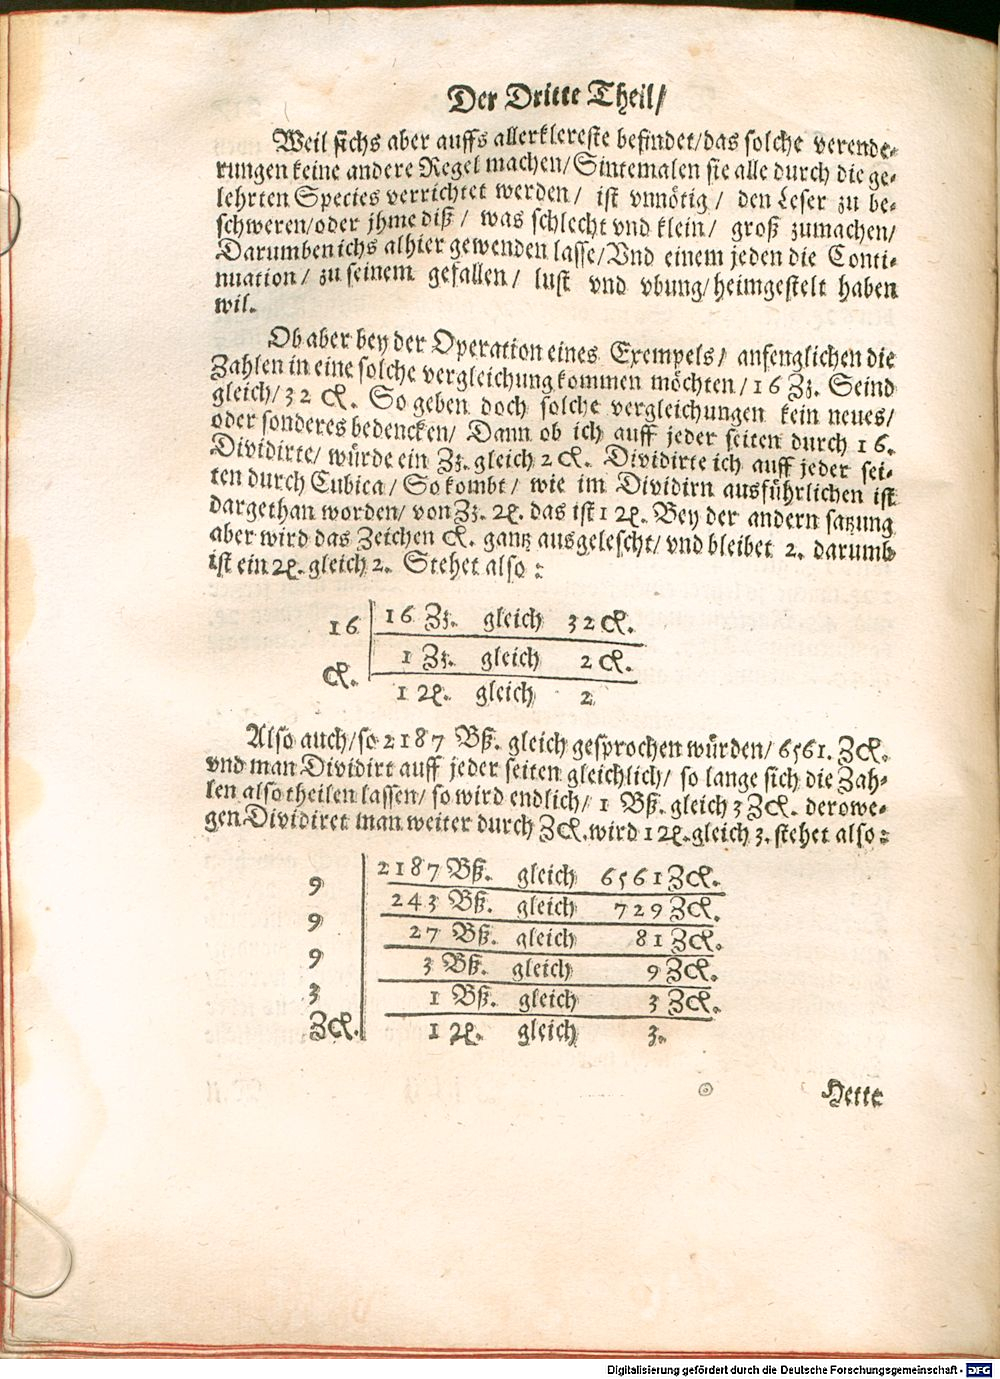 Der Dritte Theil/
Weil sichs aber auffs allerklereste befindet/das solche verende-
rungen keine andere Regel machen/Sintemalen sie alle durch die ge-
lehrten Species verrichtet werden/ ist vnnötig/ den Leser zu be-
schweren/oder jhme diß/ was schlecht vnd klein/ groß zumachen/
Darumben ichs alhier gewenden lasse/Vnd einem jeden die Conti-
nuation/ zu seinem gefallen/ lust vnd vbung/heimgestelt haben
wil.
Ob aber bey der Operation eines Exempels/ anfenglichen die
Zahlen in eine solche vergleichung kommen möchten/ 16 Zz. Seind
gleich/ 32 Cl. So geben doch solche vergleichungen kein neues/
oder sonderes bedencken/ Dann ob ich auff jeder seiten durch 16.
Dividirte/ würde ein Zz. gleich 2 Cl. Dividirte ich auff jeder sei-
ten durch Cubica/ So kombt/ wie im Dividirn ausführlichen ist
dargethan worden/ von Zz. 2e. das ist 1 2e. Bey der andern satzung
aber wird das Zeichen Cl. gantz ausgelescht/ vnd bleibet 2. darumb
ist ein 2e. gleich 2. Stehet also:
16 16 Zz. gleich 32 Cl.
1 Zz. gleich 2 Cl.
Cl. 1 2e. gleich 2
Also auch/so 2187 Bß. gleich gesprochen würden/ 6561. ZCl.
vnd man Dividirt auff jeder seiten gleichlich/ so lange sich die Zah-
len also theilen lassen/ so wird endlich/ 1 Bß. gleich 3 ZCl. derowe-
gen Dividiret man weiter durch ZCl. wird 1 2e. gleich 3. stehet also:
2187 Bß. gleich 6561 ZCl.
9 243 Bß. gleich 729 ZCl.
9 27 Bß. gleich 81 ZCl.
9 3 Bß. gleich 9 ZCl.
3 1 Bß. gleich 3 ZCl.
ZCl. 1 2e. gleich 3.
Hette
Digitalisierung gefördert durch die Deutsche Forschungsgemeinschaft - DFG